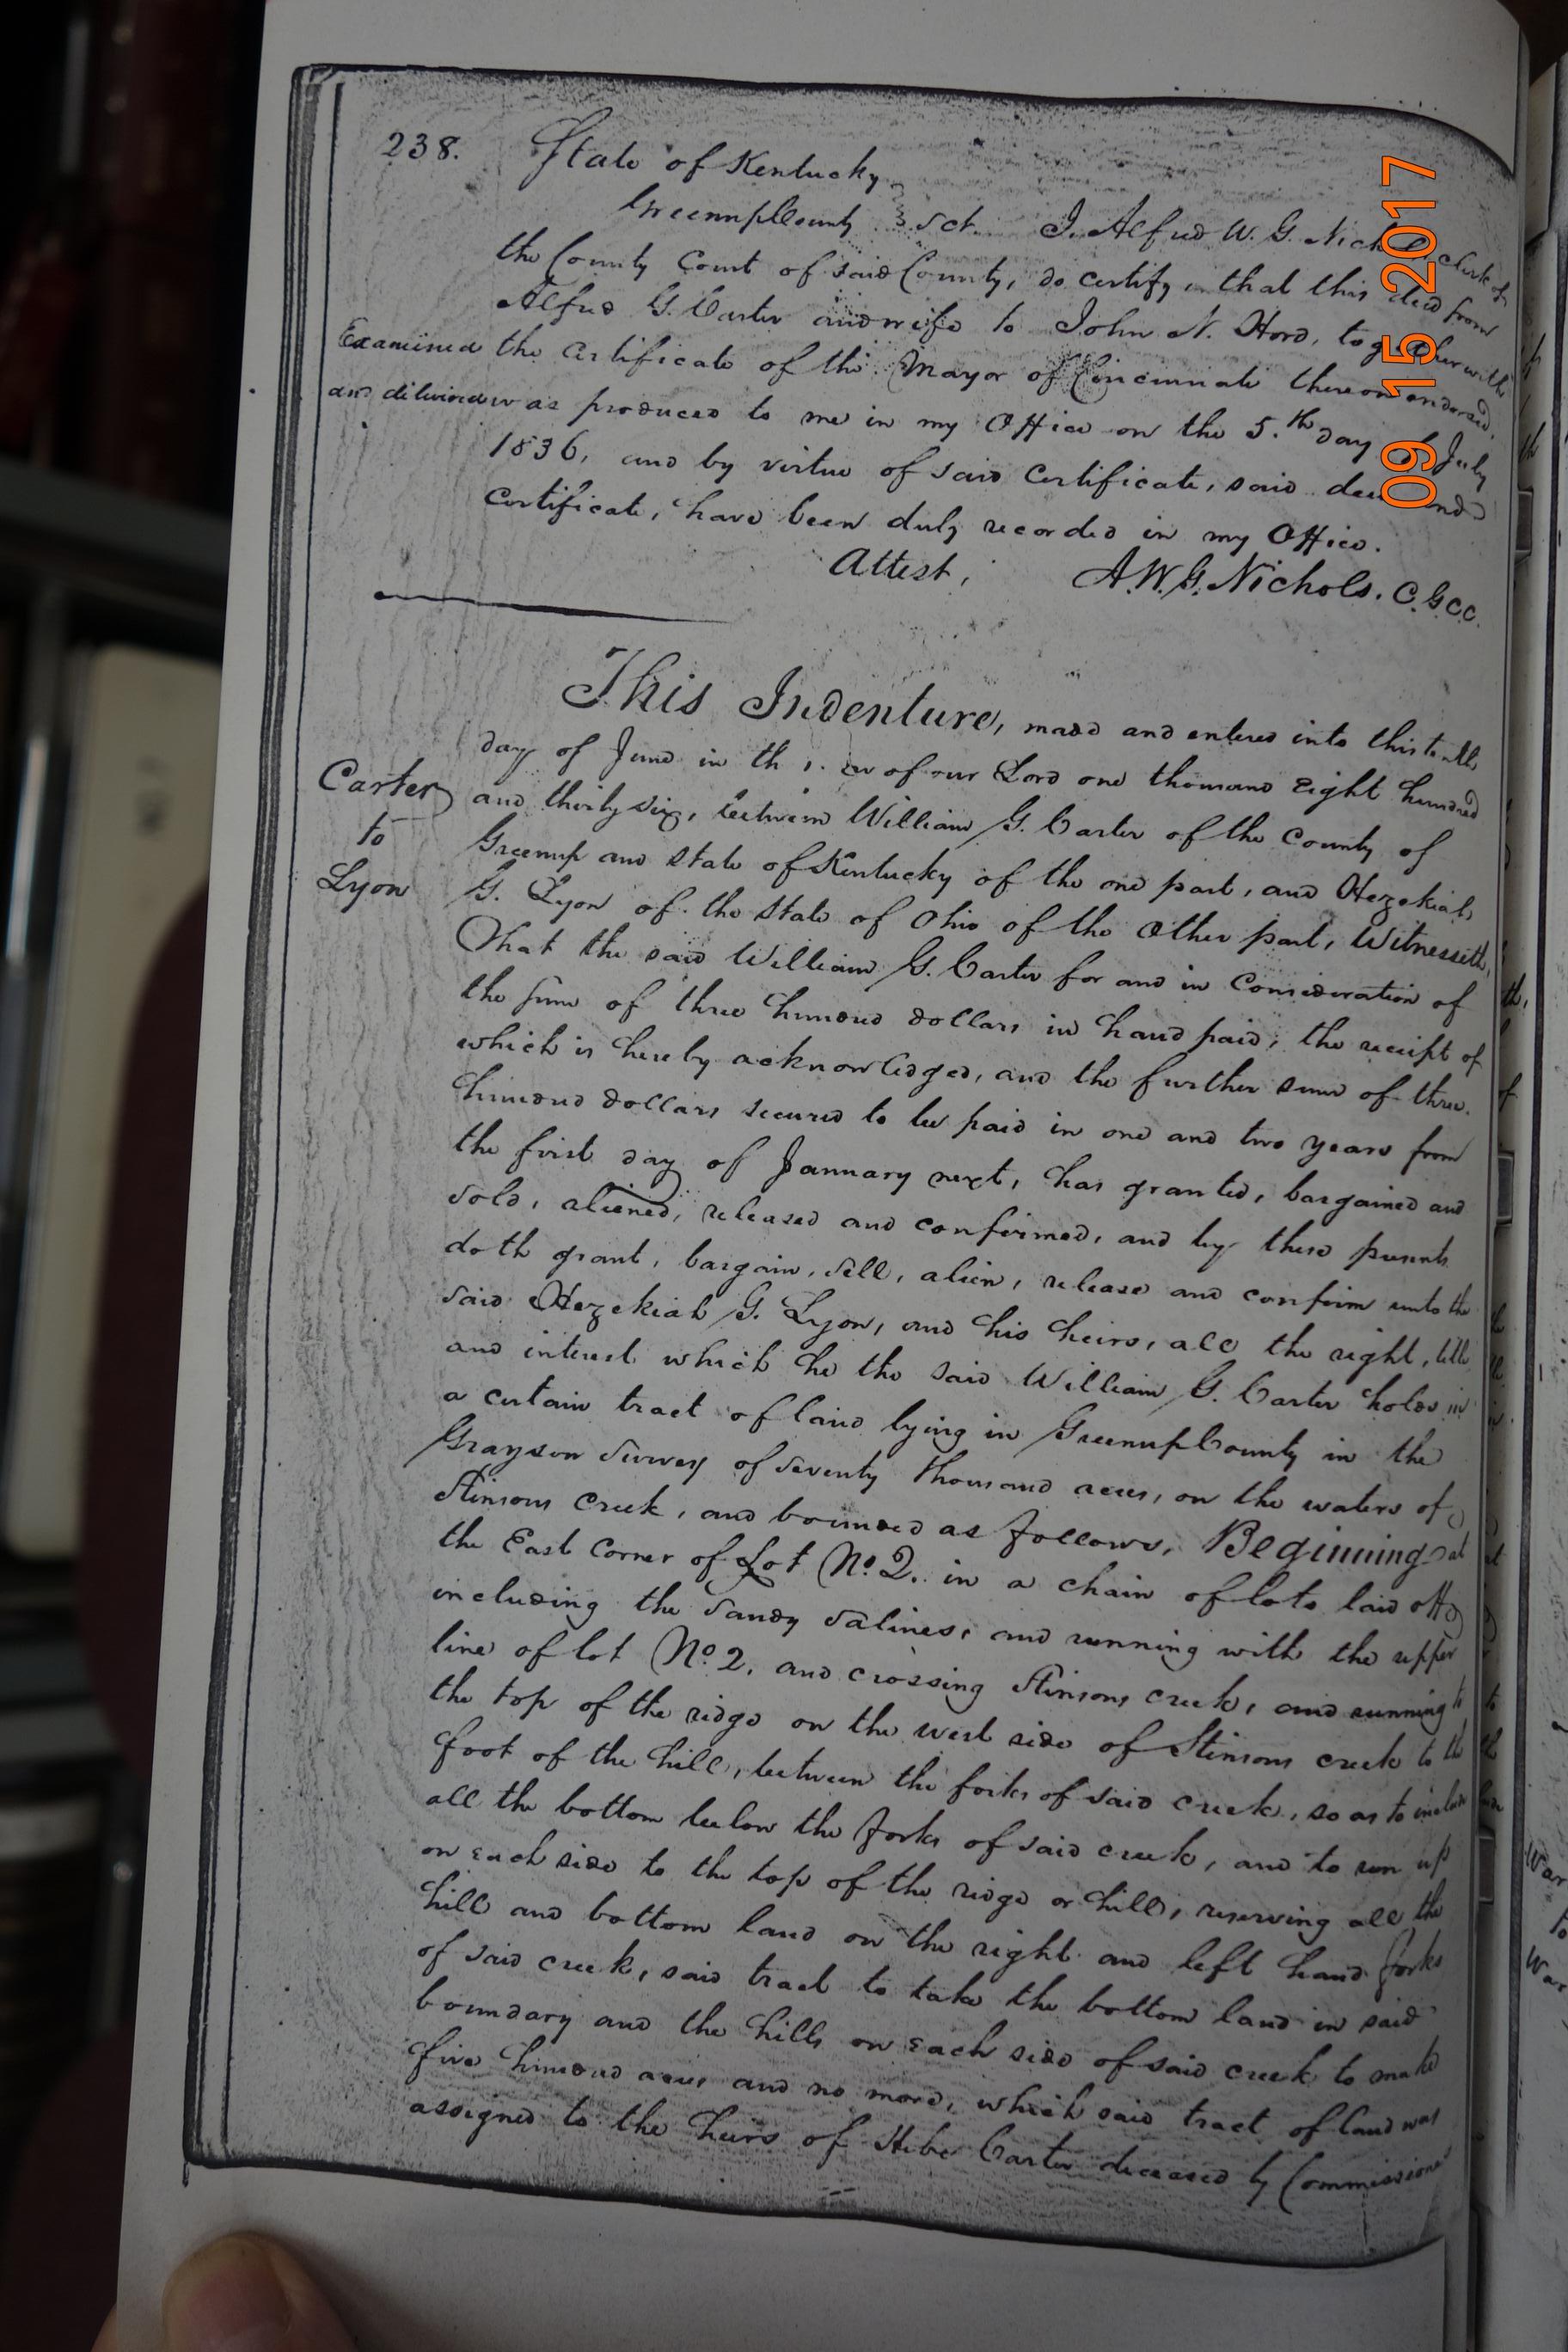 238. State of Kentucky
Greenup County } Sct. I. Alfred W. G. Nichols clerk of
the County Court of said County, do certify, that this deed from
Alfred G. Carter and wife to John N. Hord, together with
Examined the certificate of the Mayor of Cincinnati thereon endorsed,
and delivered was produced to me in my Office on the 5.th day of July
1836, and by virtue of said certificate, said deed and
certificate, have been duly recorded in my Office.
Attest, A.W.G. Nichols. C.G.C.C.
This Indenture, made and entered into this tenth
day of June in the of our Lord one thousand Eight hundred
Carter and thirty six, between William G. Carter of the County of
to Greenup and State of Kentucky of the one part, and Hezekiah
Lyon G. Lyon of the State of Ohio of the other part, Witnesseth,
That the said William G. Carter for and in consideration of
the sum of three hundred dollars in hand paid, the receipt of
which is hereby acknowledged, and the further sum of three
hundred dollars secured to be paid in one and two years from
the first day of January next, has granted, bargained and
sold, aliened, released and confirmed, and by these presents
doth grant, bargain, sell, alien, release and confirm unto the
said Hezekiah G. Lyon, and his heirs, all the right, title
and interest which he the said William G. Carter holds in
a certain tract of land lying in Greenup County in the
Grayson Survey of seventy thousand acres, on the waters of
Stinsons creek, and bounded as follows, Beginning at
the East corner of Lot No. 2. in a chain of lots laid off
including the Sandy Salines, and running with the upper
line of lot No. 2. and crossing Stinsons creek, and running to
the top of the ridge on the west side of Stinsons creek to the
foot of the hill, between the forks of said creek, so as to include
all the bottom below the forks of said creek, and to run up
on each side to the top of the ridge or hill, reserving all the
hill and bottom land on the right and left hand forks
of said creek, said tract to take the bottom land in said
boundary and the hills on each side of said creek to make
five hundred acres and no more, which said tract of land was
assigned to the heirs of Hebe Carter deceased by Commissioners
09 15 2017